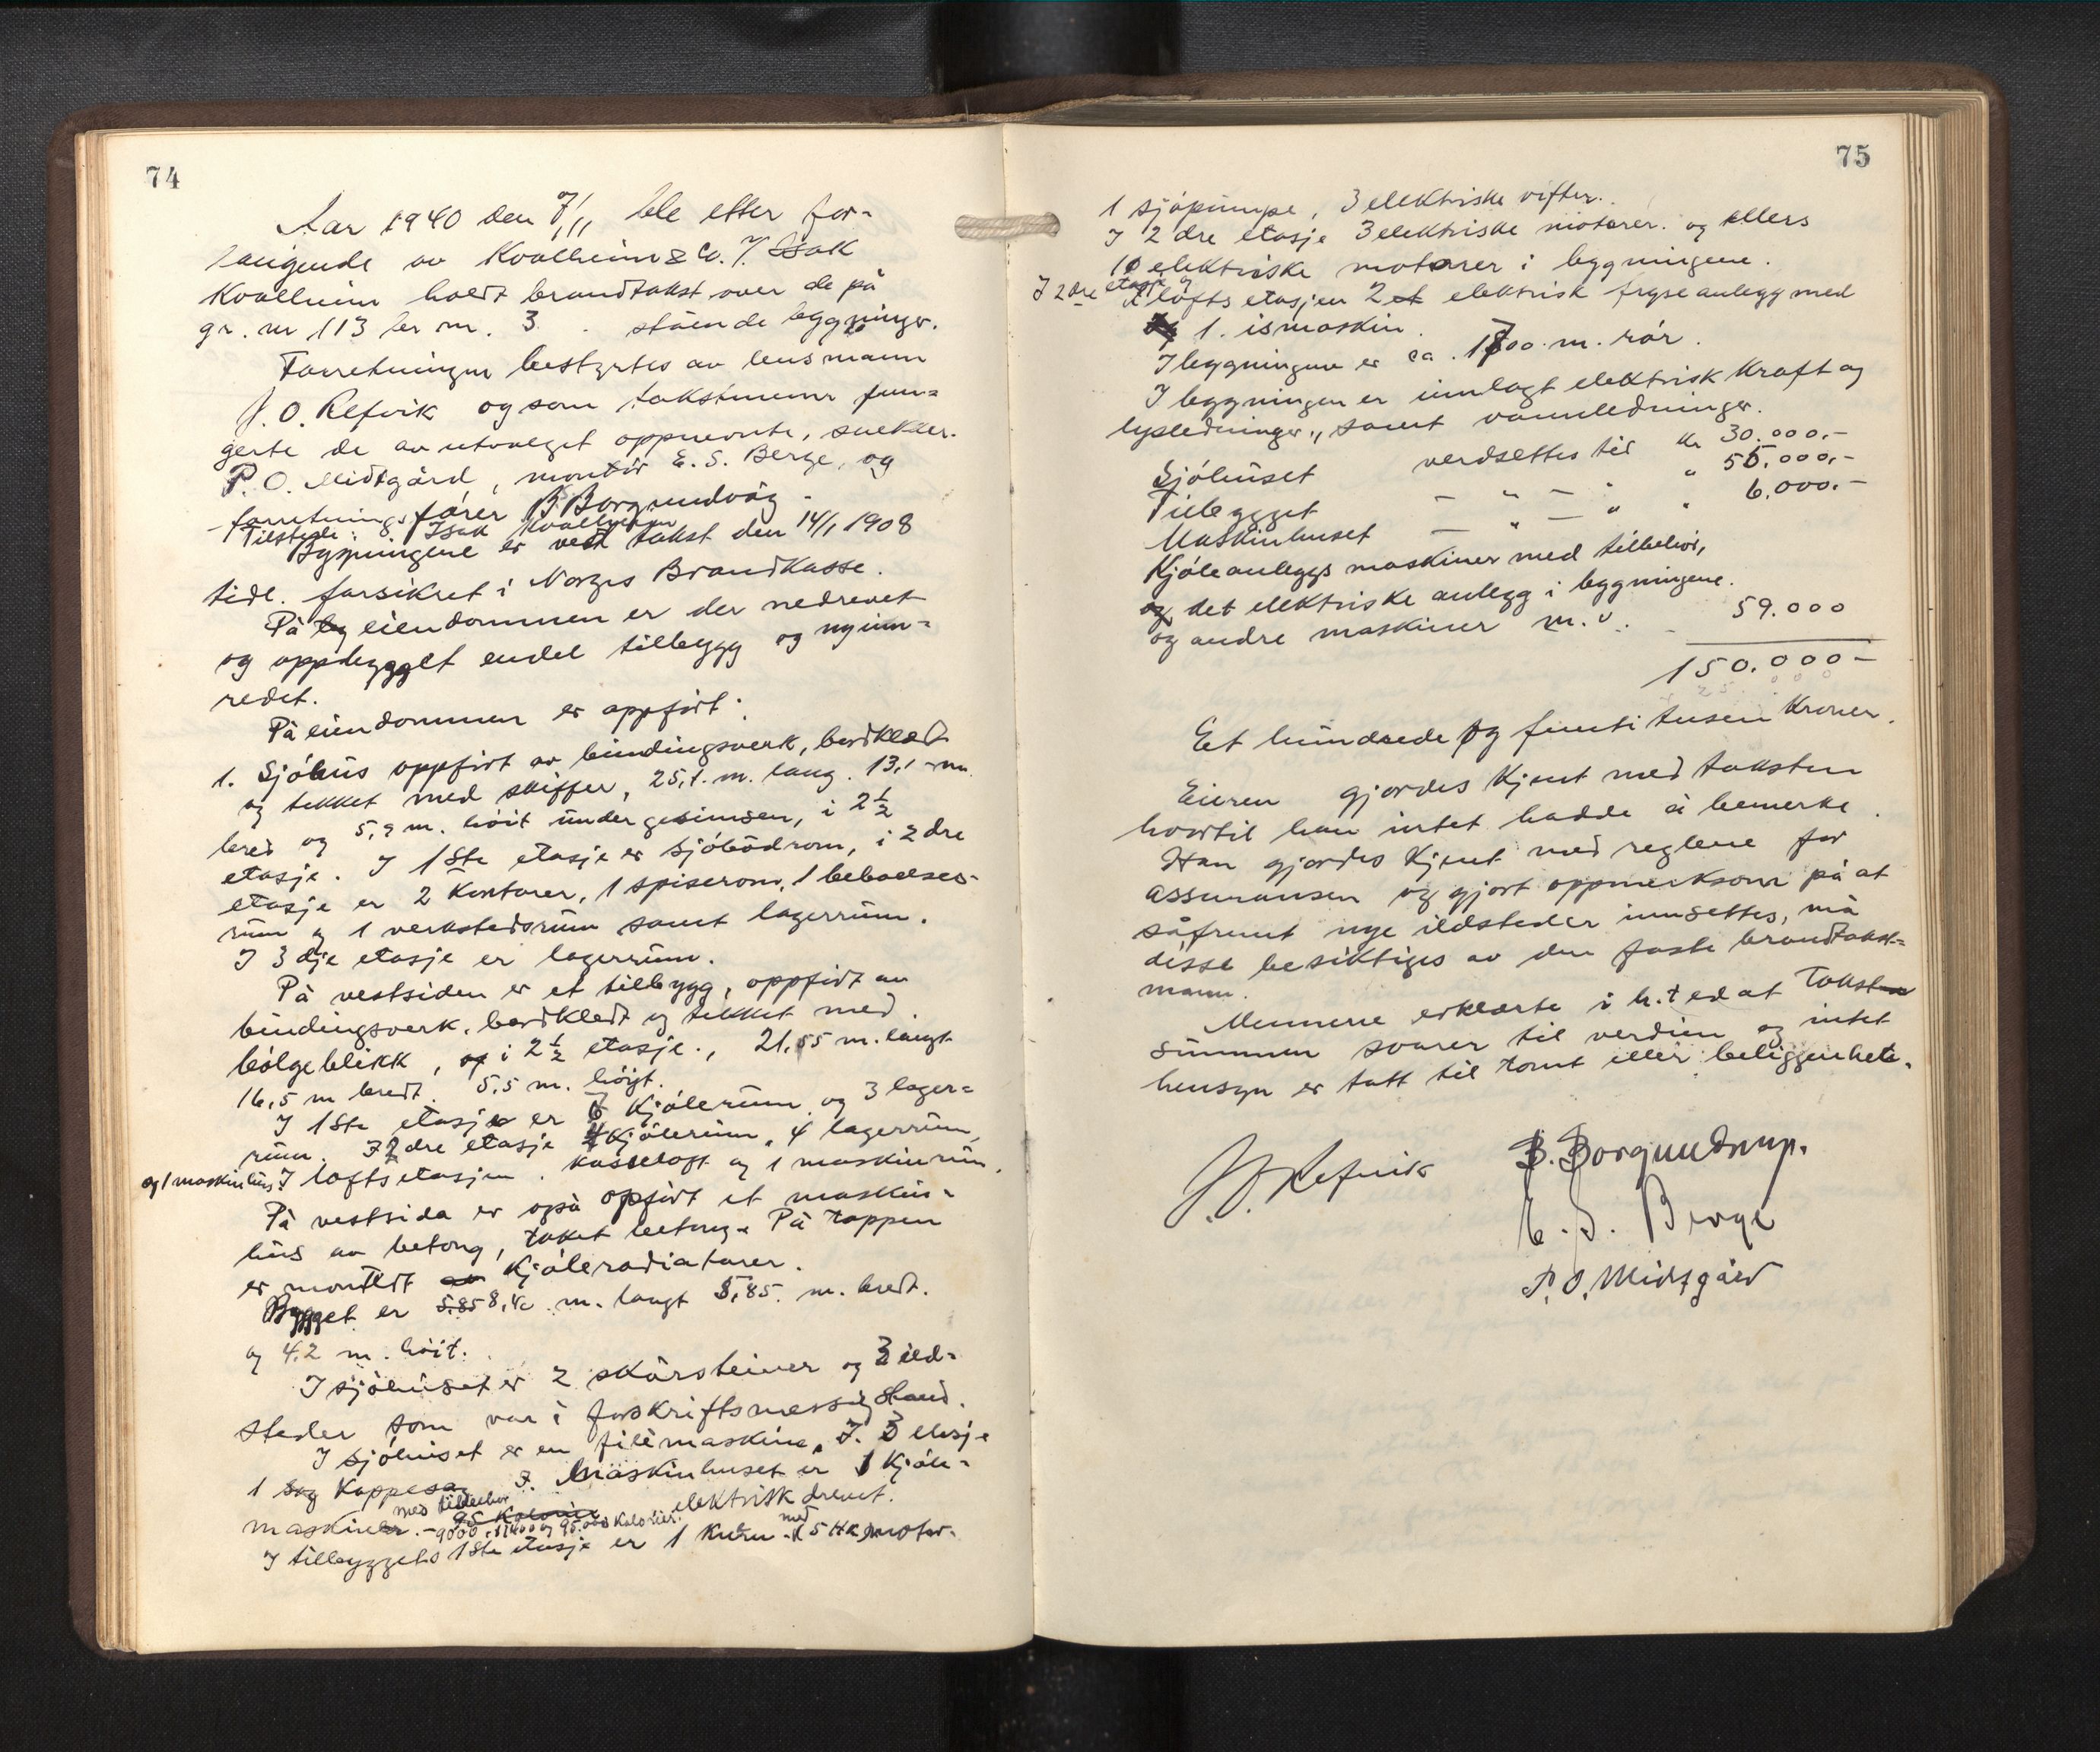 74
Aar 1940 den 7/11 ble etter for-
langende av Kvalheim & Co. V. Isak
Kvalheim holdt brandtakst over de på
gr. nr 113 br nr. 3. stående bygninger.
Forretningen bestyrtes av lensmann
J. O. Refvik og som takstmenn fun-
gerte de av utvalget oppnevnte, snekker.
P. O. Midtgård, montør E. S. Berge, og
forretningsfører B. Borgundvåg.
Tilstede: Isak Kvalheim
Bygningene er ved takst den 14/1 1908
tidl. forsikret i Norges Brandkasse.
På by eiendommen er der nedrevet
og oppbygget endel tilbygg og nyinn-
redet.
På eiendommen er oppført:
1. Sjøhus oppført av bindingsverk, bordkledt
og tekket med skiffer, 25,1. m. lang. 13,1 m.
bred og 5,9 m. høit under gesimsen, i 2½
etasje. I 1ste etasje er sjøbodrom, i 2dre
etasje er 2 Kontorer, 1 spiserom, 1 beboelses-
rum og 1 verkstedsrum samt lagerrum.
I 3dje etasje er lagerrum.
På vestsiden er et tilbygg, oppført av
bindingsverk, bordkledt og tekket med
bølgeblikk, og i 2½ etasje., 21,55 m. langt
16,5 m bredt. 5,5 m. høyt.
I 1ste etasje er 6 Kjølerum og 3 lager-
rum. I 2dre etasje 4 Kjølerum, 4 lagerrum
og 1 maskinhus I loftsetasjen. kasseloft og 1 maskinrum.
På vestsida er også oppført et maskin-
hus av betong, taket betong. På toppen
er montert av Kjøleradiatorer.
Bygget er 5,85 8,40 m. langt 5,85 m. bredt.
og 4,2 m. høit.
I sjøhuset er 2 skorsteiner og 3 ild-
steder som var i forskriftsmessig stand.
I sjøhuset er en filémaskine, I. 3 etasje
1 sag Kappesag I. Maskinhuset er 1 Kjøle-
maskiner. med tilbehør 95 Kalorier - 9000, 11400 og 95.000 Kalorier. elektrisk drevet.
I tilbyggets 1ste etasje er 1 Kvern med 5 HK motor.
75
1 sjøpumpe, 3 elektriske vifter.
I 2dre etasje 3 elektriske motorer. og ellers
10 elektriske motorer i bygningene.
I 2dre etasje og I loftsetasjen 2 et elektrisk fryseanlegg med
og 1. ismaskin.
I bygningene er ca. 1700 m. rør.
I bygningen er innlagt elektrisk Kraft og
lysledninger, samt vannledninger.
Sjøhuset verdsettes til kr 30.000,-
Tilbygget — " — " " 55.000,-
Maskinhuset — " — " " 6.000.-
Kjøleanleggs maskiner med tilbehør,
og det elektriske anlegg i bygningene.
og andre maskiner m. v. - 59.000
150.000 -
Et hundrede og femti tusen Kroner.
Eieren gjordes kjent med taksten
hvortil han intet hadde å bemerke.
Han gjordes kjent med reglene for
assuransen og gjort oppmerksom på at
såfremt nye ildsteder innsettes, må
disse besiktiges av den faste brandtakst-
mann.
Mennene erklærte i h. t. ed at takst
summen svarer til verdien og intet
hensyn er tatt til tomt eller beliggenhet.
J. O. Refvik
B. Borgundvåg.
E. S. Berge
P. O. Midtgård